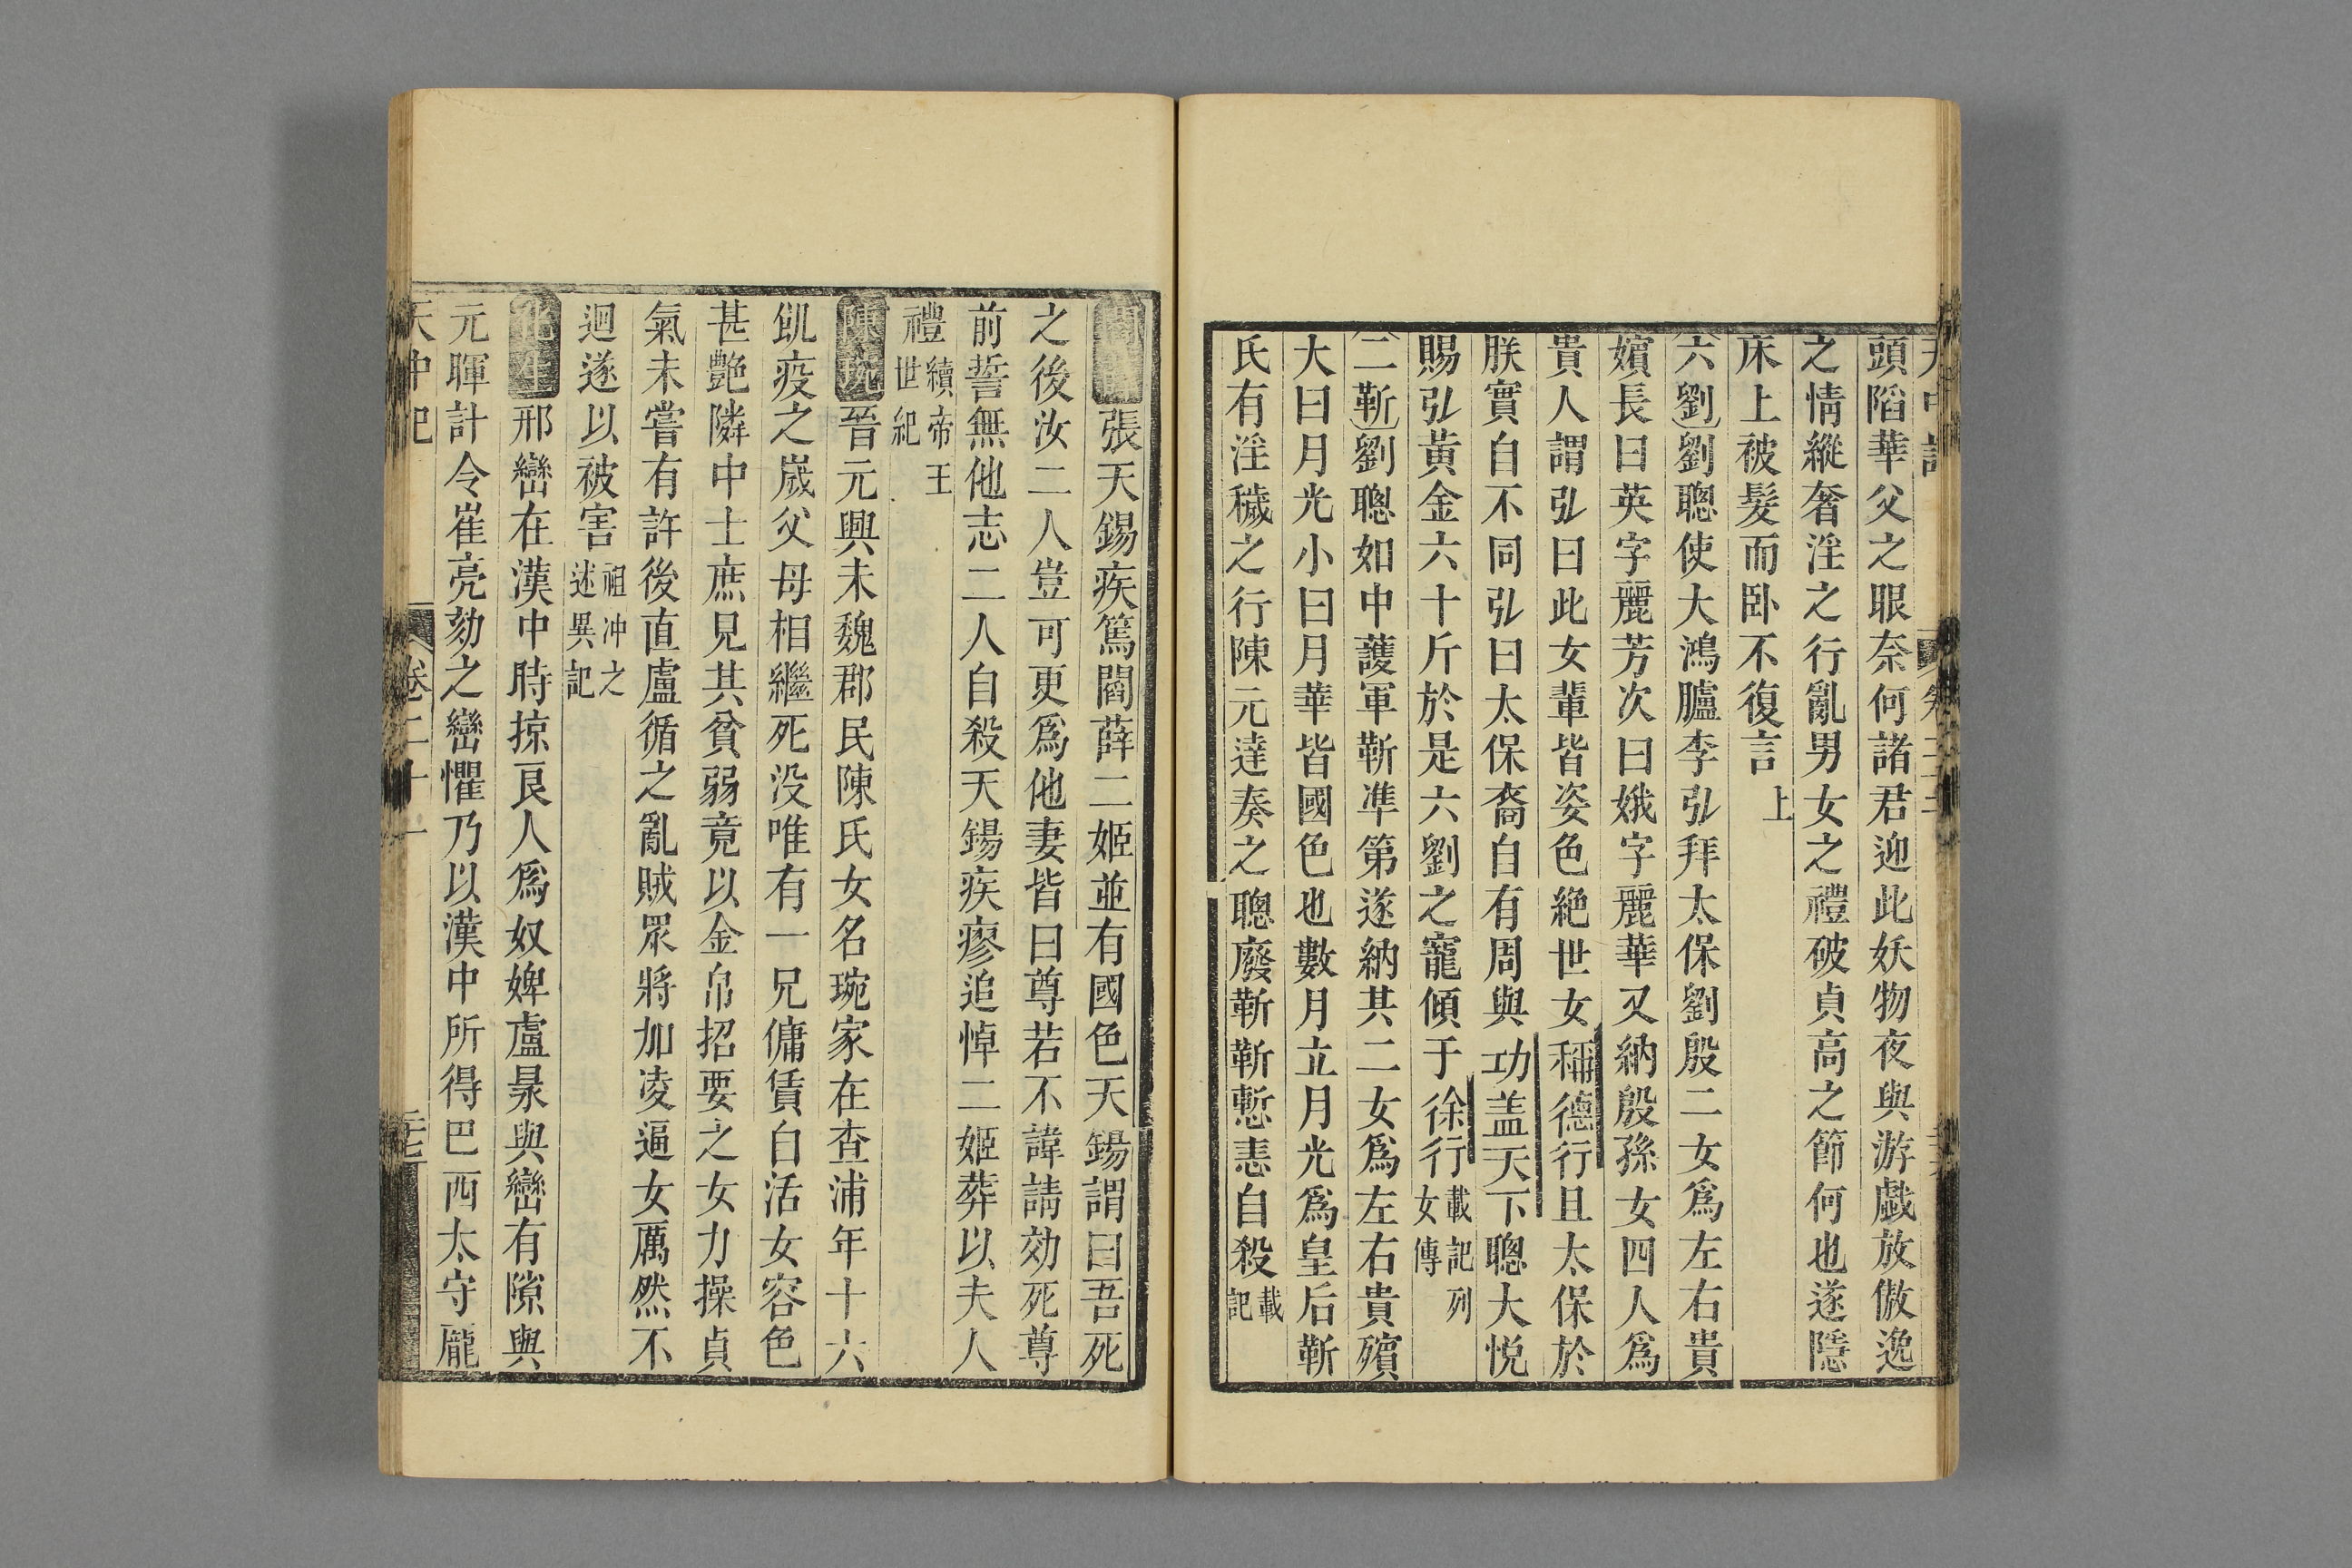 頭䧟華父之眼奈何諸君迎此妖物夜與游戯放傲逸
之情縱奢淫之行亂男女之禮破貞高之節何也遂隱
床上被髮而卧不復言上
六劉劉聰使大鴻臚李弘拜太保劉殷二女爲左右貴
嬪長曰英字麗芳次曰娥字麗華又納殷孫女四人爲
貴人謂弘曰此女輩皆姿色絶世女稱德行且太保於
朕實自不同弘曰太保裔自有周與功盖天下聰大悦
賜弘黃金六十斤於是六劉之寵傾于徐行載記列女傳
二靳劉聰如中護軍靳凖第遂納其二女爲左右貴殯
大曰月光小曰月華皆國色也數月立月光爲皇后靳
氏有淫穢之行陳元達奏之聰廢靳靳慙恚自殺載記
張天錫疾篤閻薛二姬並有國色天錫謂曰吾死
之後汝二人豈可更爲他妻皆曰尊若不諱請効死尊
前誓無他志二人自殺天錫疾瘳追悼二姬葬以夫人
禮續帝王世紀
陳琬晉元興末魏郡民陳氏女名琬家在查浦年十六
飢疫之歲父母相繼死没唯有一兄傭賃自活女容色
甚艷隣中士庶見其貧弱竟以金帛招要之女力操貞
氣未嘗有許後直盧循之亂賊眾將加凌逼女厲然不
迴遂以被害祖冲之述異記
化生邢巒在漢中時掠良人爲奴婢盧㫤與巒有隙與
元暉計令崔亮劾之巒懼乃以漢中所得巴西太守龎
天中記 卷二十一